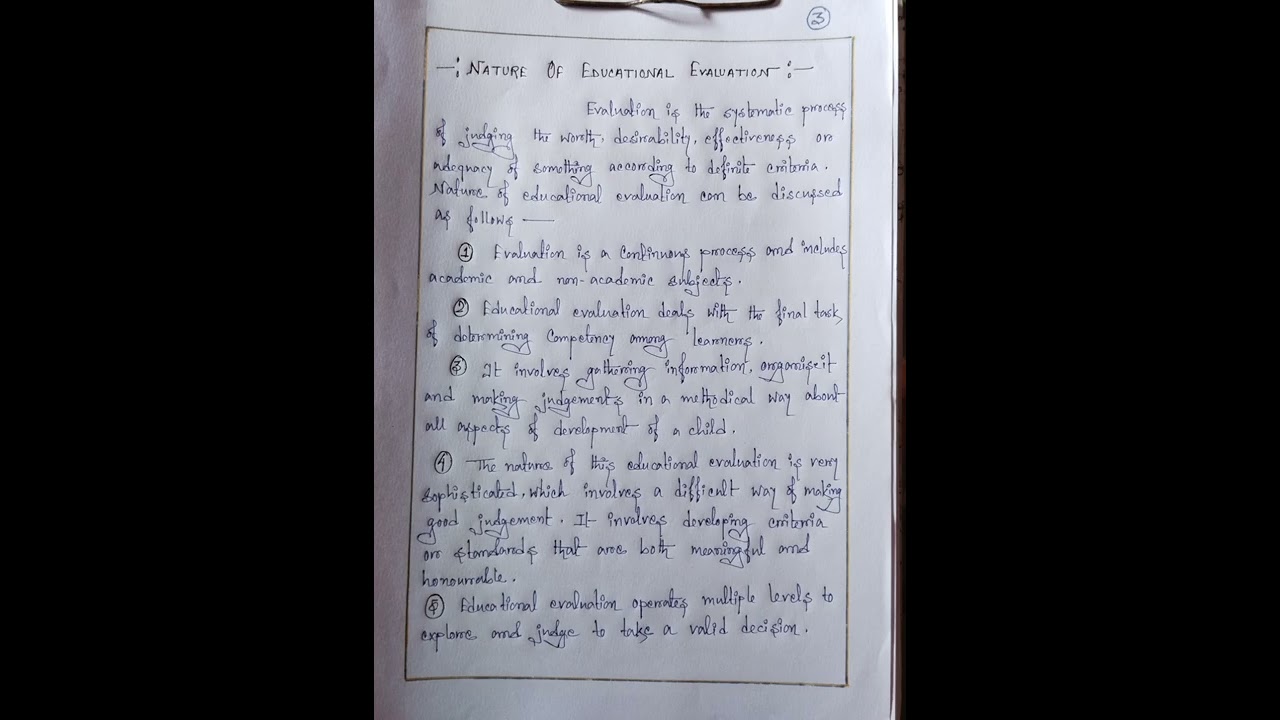 3
—: NATURE OF EDUCATIONAL EVALUATION :—
Evaluation is the systematic process
of judging the worth, desirability, effectiveness or
adequacy of something according to definite criteria.
Nature of educational evaluation can be discussed
as follows —
① Evaluation is a continuous process and includes
academic and non-academic subjects.
② Educational evaluation deals with the final task
of determining competency among learners.
③ It involves gathering information, organise it
and making judgements in a methodical way about
all aspects of development of a child.
④ The nature of this educational evaluation is very
sophisticated, which involves a difficult way of making
good judgement. It involves developing criteria
or standards that are both meaningful and
honourable.
⑤ Educational evaluation operates multiple levels to
explore and judge to take a valid decision.